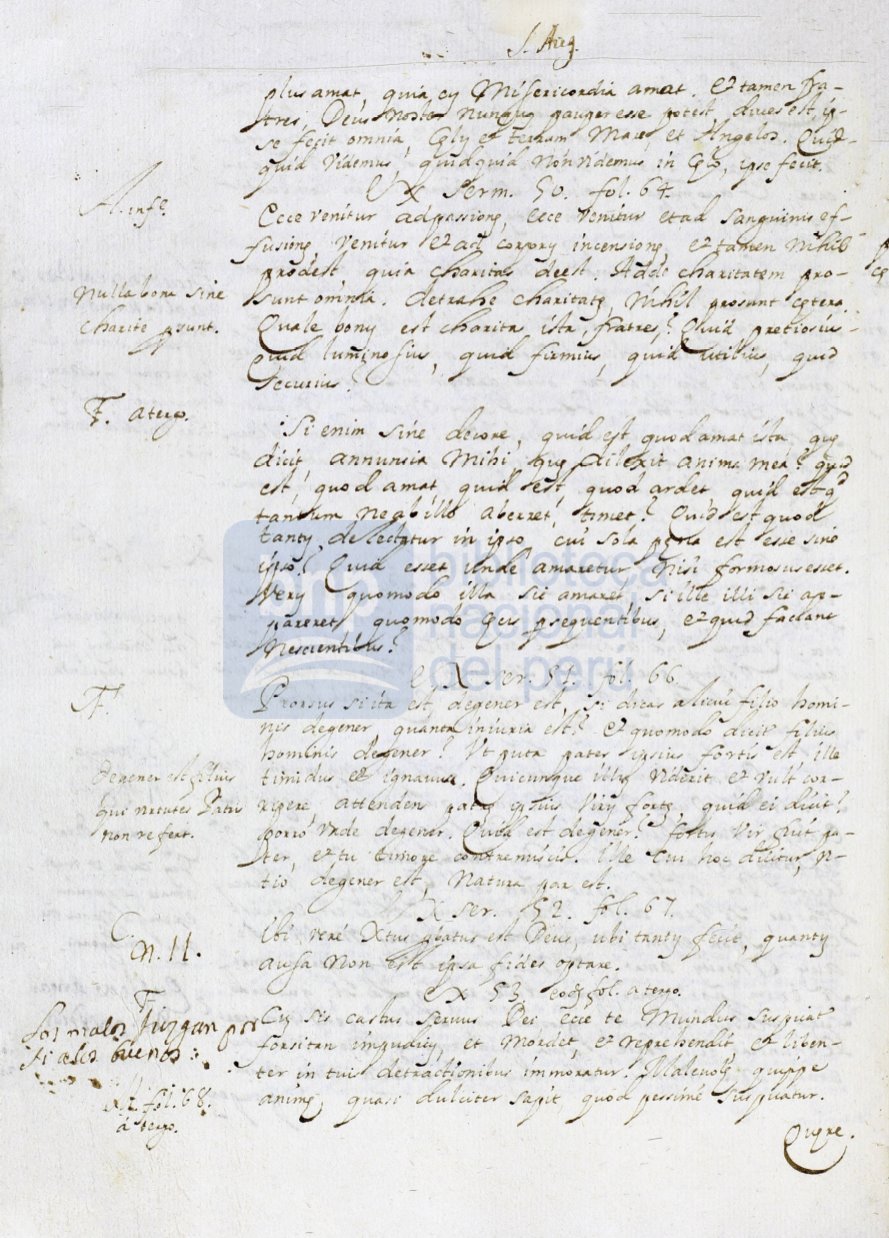 S. Aug.
plus amat, quia cũ Misericordia amat. Et tamen fra-
tres, Deus noster nunquã pauper esse potest, dives est, ip-
se fecit omnia, Cęlũ et terram Mare, et Angelos. Quid-
quid videmus, quidquid non videmus in Cęlo, ipse fecit.
EX Serm. 50. fol. 64.
Ecce venitur ad passionẽ, ecce venitur et ad sanguinis ef-
fusionẽ venitur et ad corporis incensionẽ, et tamen nihil
prodest quia charitas deest. Adde charitatem pro-
sunt omnia. detrahe charitatẽ, Nihil prosunt cętera.
Quale bonũ est charitas ista, fratres? Quid pretiosius
quid luminosius, quid firmius, quid utilius, quid
securius?
A. infr.
Nulla bona sine
charite psunt.
F. a tergo.
Si enim sine decore, quid est, quod amat ista, quę
dicit, annuncia Mihi, quẽ dilexit anima mea? quid
est, quod amat, quid est quod ardet, quid est qd
tantum ne ab illo aberret, timet? Quid est quod
tantũ delectatur in ipso, cui sola pęna est esse sine
ipso? Quid esset unde amaretur nisi formosus esset.
Verũ quomodo illa sic amaret, si ille illi sic ap-
pareret, quomodo psequentibus, et quid faciant
Nescientibus?
EX ser. 51. fol. 66.
F.
Prorsus si ita est, degener est, si dicas alicui filio homi-
nis degener, quanta iniuria est? et quomodo dicit filius
hominis degener? Ut puta pater ipsius fortis est, ille
timidus et ignavus. Quicunque illũ viderit, et vult cor-
rigere, attendens patrẽ ipsius virũ fortẽ, quid ei dicit?
Degener est filius
qui virtutes Patris
non refert.
degener. Quid est degener? fortis vir fuit pa-
ter, et tu timore contremiscis. Ille cui hoc dicitur, vi-
tio degener est, Natura par est.
EX ser. 52. fol. 67.
C.
N. 11.
Ubi verè Xtus est Deus, ubi tantũ fecit, quantũ
ausa non est ipsa fides optare.
EX 53. eodẽ fol. a tergo.
F.
Los malos Juzgan por
si a los buenos:
fol. 68.
a tergo.
Cũ sis castus servus Dei, ecce te Mundus suspicat
forsitan impudicũ, et Mordet, et reprehendit, et liben-
ter in tuis detractionibus immoratur. Malevolę quippe
animę, quasi dulciter sapit, quod pessimè suspicatur.
Quęre.